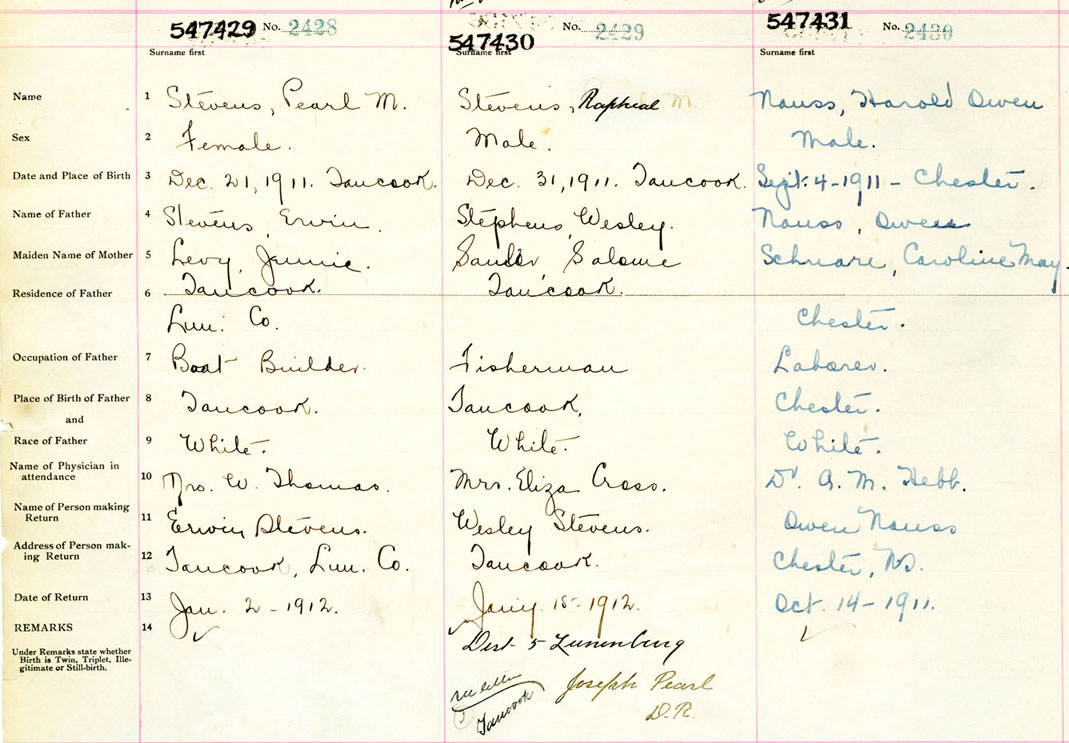 547429 No. 2428
547430 No. 2429
547431 No. 2430
Surname first Surname first Surname first
Name 1 Stevens, Pearl M. Stevens, Rapheal M. Nauss, Harold Owen
Sex 2 Female. Male. Male.
Date and Place of Birth 3 Dec. 21, 1911. Tancook. Dec. 31, 1911. Tancook. Sept. 4-1911 - Chester.
Name of Father 4 Stevens, Erwin. Stephens, Wesley. Nauss, Owen
Maiden Name of Mother 5 Levy, Jennie. Salome Schnare, Caroline May.
Residence of Father 6 Tancook. Tancook.
Lun. Co. Chester.
Occupation of Father 7 Boat Builder. Fisherman Laborer.
Place of Birth of Father 8 Tancook. Tancook, Chester.
and
Race of Father 9 White. White. White.
Name of Physician in
attendance 10 W. Thomas. Mrs. Eliza Cross. Dr. A. M. Hebb.
Name of Person making
Return 11 Erwin Stevens. Wesley Stevens. Owen Nauss
Address of Person mak-
ing Return 12 Tancook, Lun. Co. Tancook. Chester, NS.
Date of Return 13 Jan. 2-1912. Jany. 15-1912. Oct. 14-1911.
REMARKS 14
Under Remarks state whether
Birth is Twin, Triplet, Ille-
gitimate or Still-birth.
Dist 5 Lunenburg
Joseph Pearl
D.R.
Tancook